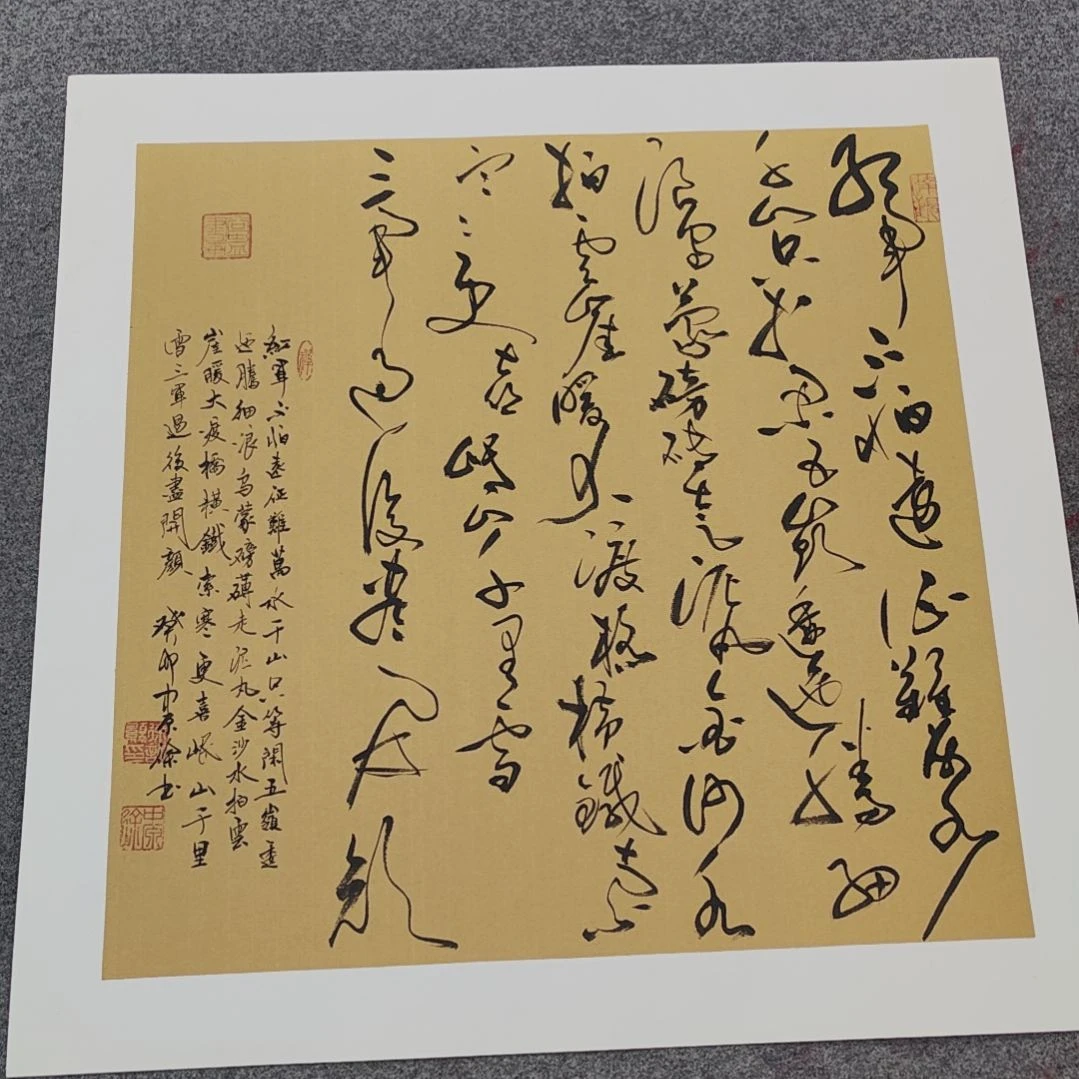 紅軍不怕遠征難萬水
千山只等閑五嶺逶迤騰細
浪烏蒙磅礴走泥丸金沙水
拍雲崖暖大渡橋橫鐵索
寒更喜岷山千里雪
三軍過後盡開顏
紅軍不怕遠征難萬水千山只等閑五嶺逶
迤騰細浪烏蒙磅礴走泥丸金沙水拍雲
崖暖大渡橋橫鐵索寒更喜岷山千里
雪三軍過後盡開顏 癸卯中原徐書